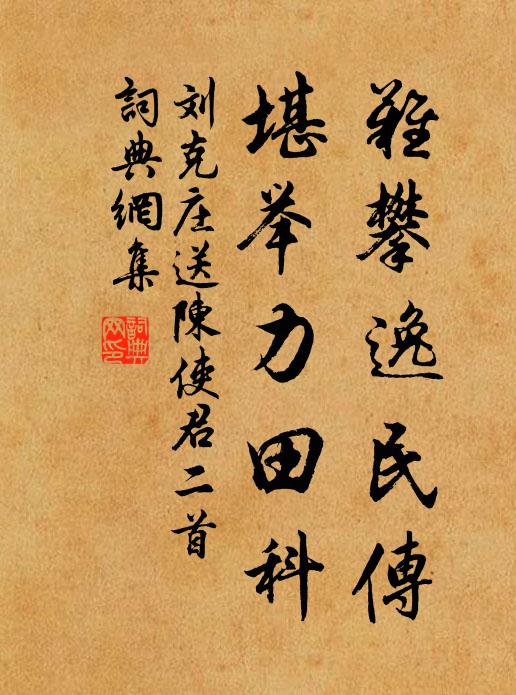 難攀逸民傳
堪举力田科
刘克庄送陳使君二首
詞典網集
詞典网印